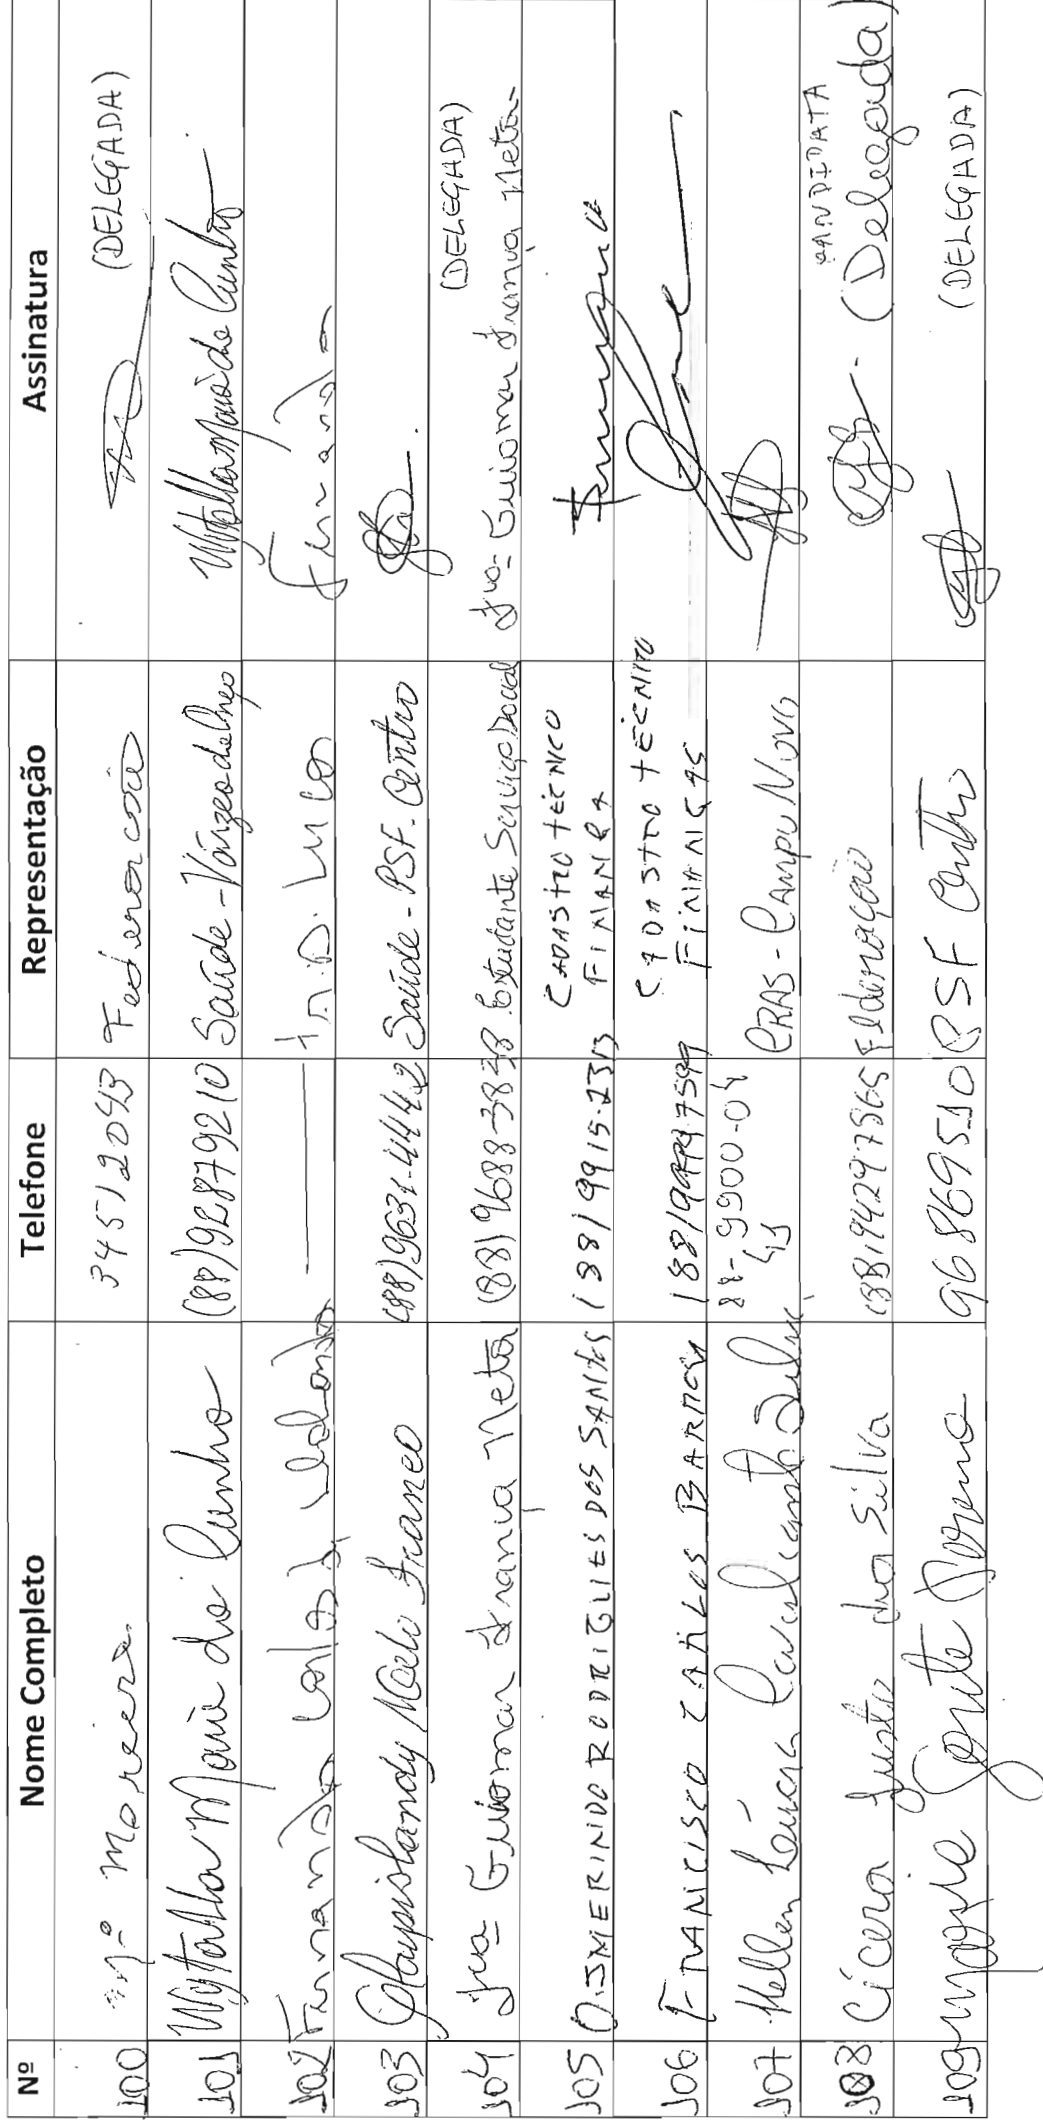 Nº Nome Completo Telefone Representação Assinatura
100 Mª Moreira 34512043 Federação (DELEGADA)
101 Wytalla Maria da Cunha (88)92879210 Saúde - Várzea da Onça Wytalla Maria da Cunha
102 Fernanda Fernanda
103 Melo Franco (88)9631-4442 Saúde - PSF. Centro
104 Fca Guiomar França Neta (88) 9688-3838 Estudante Serviço Social (DELEGADA)
Fca Guiomar França Neta
105 OSMERINDO RODRIGUES DOS SANTOS (88) 9915-2313 CADASTRO TÉCNICO
FINANÇA
106 FRANCISCO CARLOS (88) CADASTRO TÉCNICO
FINANÇAS
107 Hellen Lúcia Cavalcante Silva 88-9900-04
41 CRAS - CAMPO NOVO
108 Cícera Justa da Silva (88) 94297565 Federação CANDIDATA
(Delegada)
109 Maggie 96869510 PSF Centro (DELEGADA)